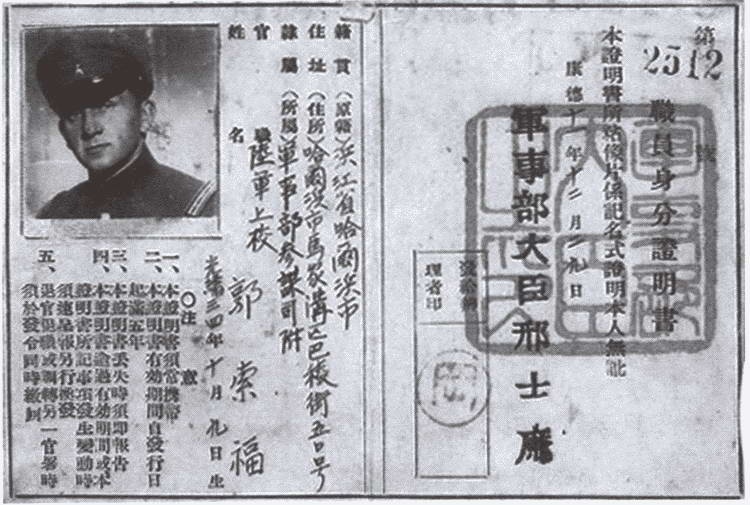 第2512號
職員身分證明書
本證明書所貼像片係記名式證明本人無訛
康德十一年十二月二九日
軍事部大臣邢士廉
發給
理者印
籍貫(原籍)濱江省哈爾濱市
住址(住所)哈爾濱市馬家溝巴陵街五〇号
隸屬(所屬)軍事部參謀司附
官職 陸軍上校
姓名 郭索福
光緒三四年十月九日生
〇注意
一、本證明書須常携帶
二、本證明書有効期間自發行日
起滿五年
三、本證明書丟失時須即報告
四、本證明書逾過有効期間或本
證明書所記事項發生變動時
須速呈報另行換發
五、退官退職或調轉另一官署時
須於發令同時繳回